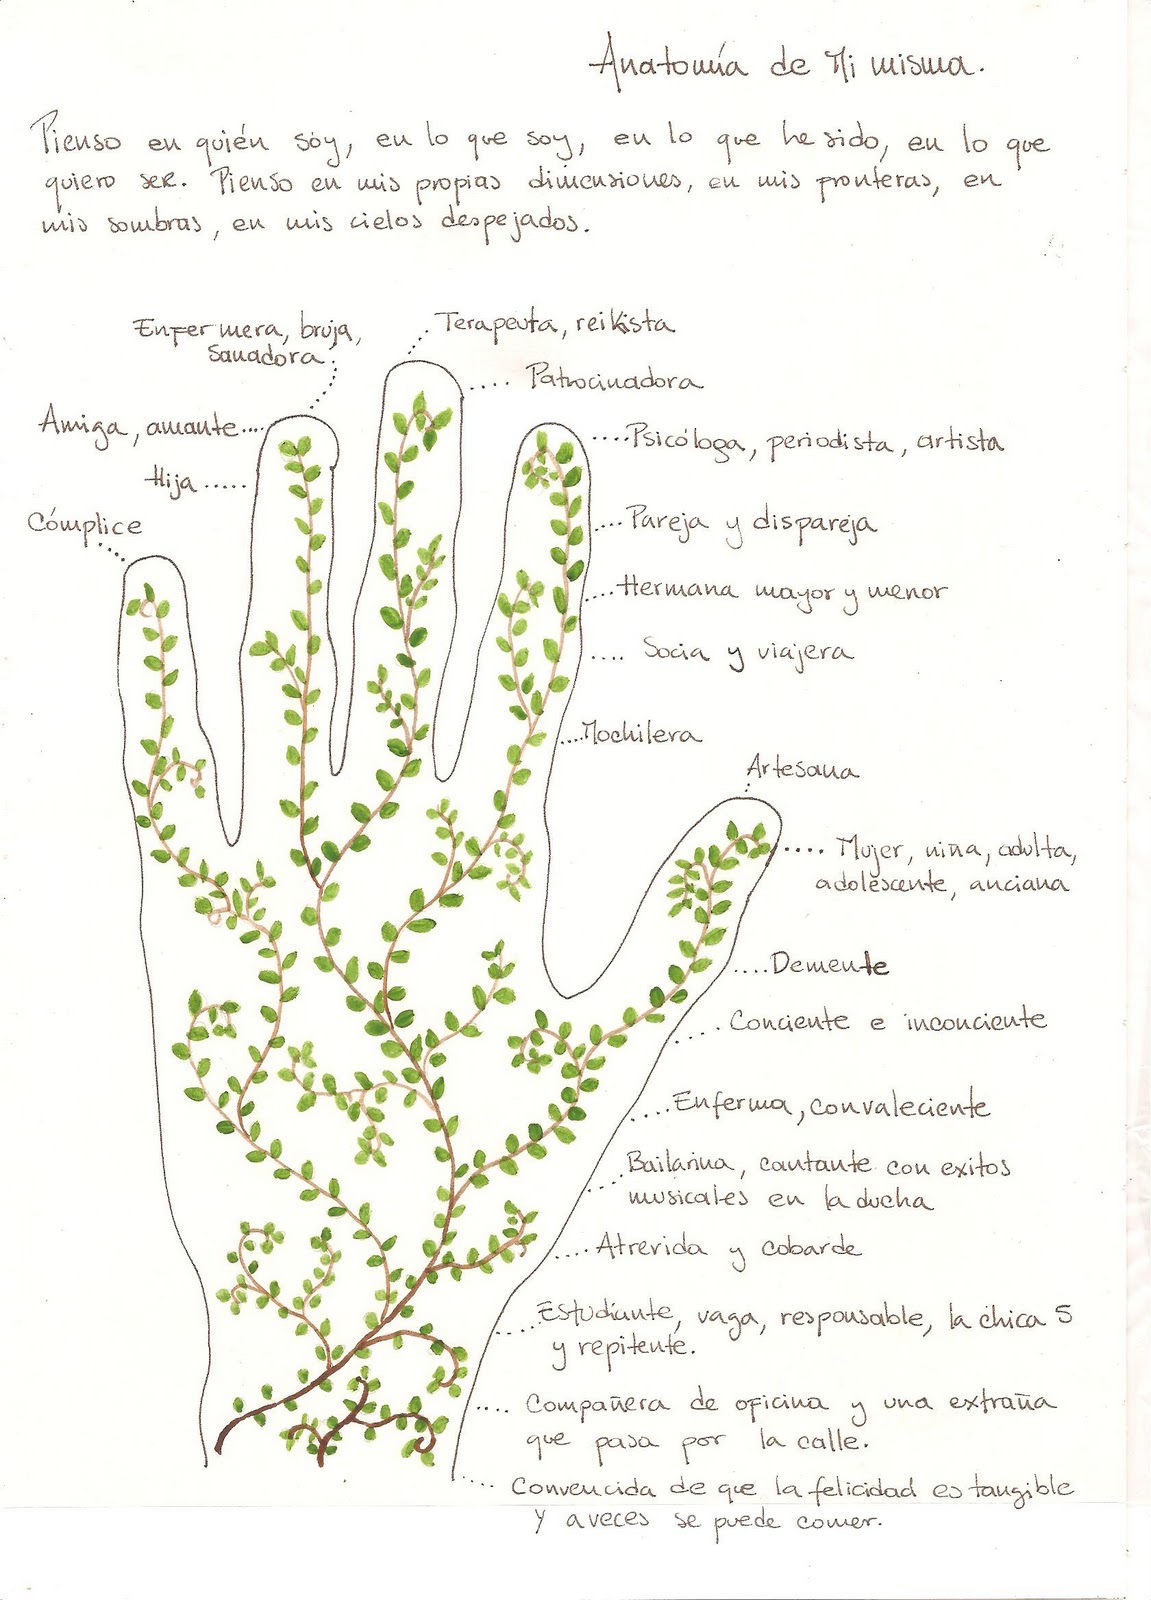 Anatomía de Mi misma.
Pienso en quién soy, en lo que soy, en lo que he sido, en lo que
quiero ser. Pienso en mis propias dimensiones, en mis fronteras, en
mis sombras, en mis cielos despejados.
Enfermera, bruja,
Sanadora
Terapeuta, reikista
Patrocinadora
Amiga, amante
Psicóloga, periodista, artista
Hija
Cómplice
Pareja y dispareja
Hermana mayor y menor
Socia y viajera
Mochilera
Artesana
Mujer, niña, adulta,
adolescente, anciana
Demente
Conciente e inconciente
Enferma, convaleciente
Bailarina, cantante con exitos
musicales en la ducha
Atrevida y cobarde
Estudiante, vaga, responsable, la chica 5
y repitente.
Compañera de oficina y una extraña
que pasa por la calle.
Convencida de que la felicidad es tangible
y a veces se puede comer.